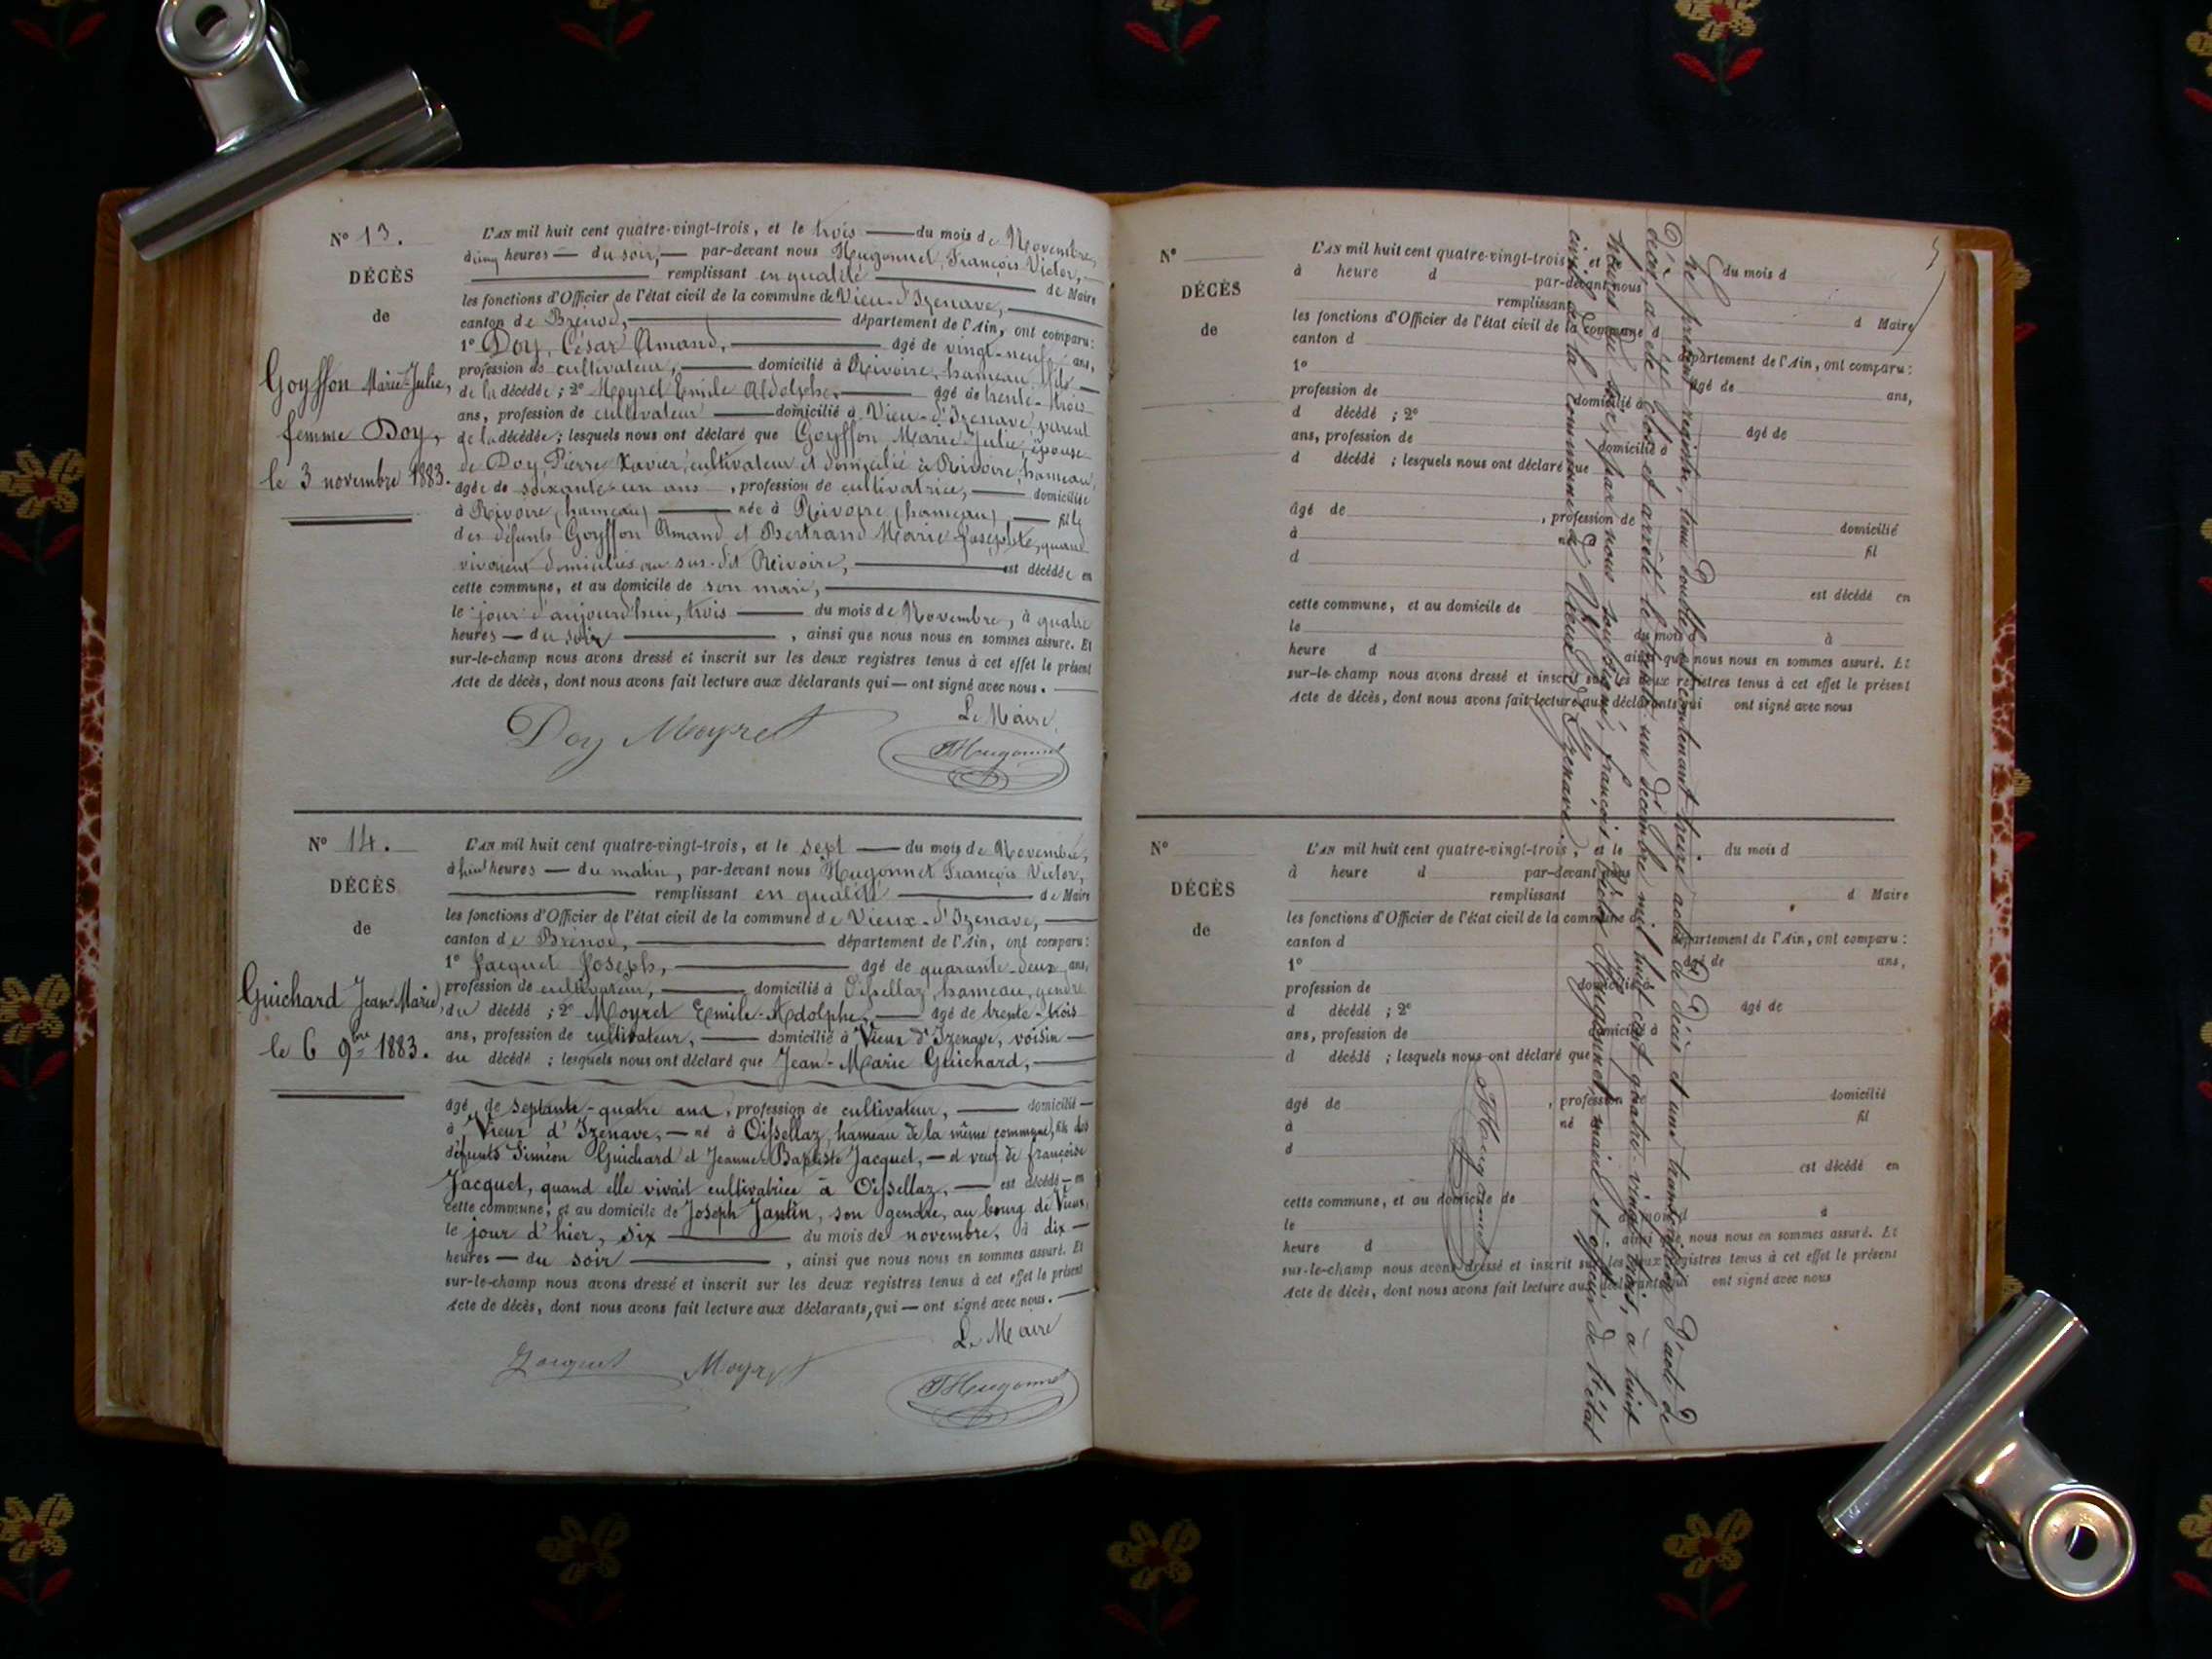 N° 13.
DÉCÈS
de
Goyffon Marie-Julie,
femme Doy,
le 3 novembre 1883.
L'AN mil huit cent quatre-vingt-trois, et le trois du mois de Novembre,
à cinq heures du soir, par-devant nous Hugonnet, François Victor,
remplissant en qualité de Maire
les fonctions d'Officier de l'état civil de la commune de Vieu-d'Izenave,
canton de Brénod, département de l'Ain, ont comparu :
1° Doy, César Amand, âgé de vingt-neuf ans,
profession de cultivateur, domicilié à Rivoire, hameau, fils
de la décédée ; 2° Moyret Emile Aldolphe, âgé de trente-trois
ans, profession de cultivateur domicilié à Vieu-d'Izenave, parent
de la décédée ; lesquels nous ont déclaré que Goyffon Marie Julie, épouse
de Doy, Pierre Xavier, cultivateur et domicilié à Rivoire, hameau,
âgée de soixante-un ans, profession de cultivatrice, domiciliée
à Rivoire (hameau) née à Rivoire (hameau) fille
des défunts Goyffon Amand et Bertrand Marie Josephte, quand
vivaient domiciliés au sus-dit Reivoire, est décédée en
cette commune, et au domicile de son mari,
le jour d'aujourd'hui, trois du mois de Novembre, à quatre
heures du soir, ainsi que nous nous en sommes assuré. Et
sur-le-champ nous avons dressé et inscrit sur les deux registres tenus à cet effet le présent
Acte de décès, dont nous avons fait lecture aux déclarants qui ont signé avec nous.
Le Maire
Doy Moyret Hugonnet
N° 14.
DÉCÈS
de
Guichard Jean-Marie,
le 6 9bre 1883.
L'AN mil huit cent quatre-vingt-trois, et le sept du mois de Novembre,
à huit heures du matin, par-devant nous Hugonnet François Victor,
remplissant en qualité de Maire
les fonctions d'Officier de l'état civil de la commune de Vieux-d'Izenave,
canton de Brénod, département de l'Ain, ont comparu :
1° Jacquet Joseph, âgé de quarante-deux ans,
profession de cultivateur, domicilié à Oissellaz, hameau, gendre
du décédé ; 2° Moyret Emile-Adolphe, âgé de trente-trois
ans, profession de cultivateur, domicilié à Vieux d'Izenave, voisin
du décédé ; lesquels nous ont déclaré que Jean-Marie Guichard,
âgé de septante-quatre ans, profession de cultivateur, domicilié
à Vieux d'Izenave, né à Oissellaz, hameau de la même commune, fils des
défunts Siméon Guichard et Jeanne-Baptiste Jacquet, et veuf de françoise
Jacquet, quand elle vivait cultivatrice à Oissellaz, est décédé en
cette commune, et au domicile de Joseph Jantin, son gendre, au bourg de Vieux,
le jour d'hier, six du mois de novembre, à dix
heures du soir, ainsi que nous nous en sommes assuré. Et
sur-le-champ nous avons dressé et inscrit sur les deux registres tenus à cet effet le présent
Acte de décès, dont nous avons fait lecture aux déclarants, qui ont signé avec nous.
Le Maire
Jacquet Moyret Hugonnet
N°
DÉCÈS
de
L'AN mil huit cent quatre-vingt-trois, et le du mois d
à heure d par-devant nous
remplissant d Maire
les fonctions d'Officier de l'état civil de la commune d
canton d département de l'Ain, ont comparu :
1° âgé de ans,
profession de domicilié à
d décédé ; 2° âgé de
ans, profession de domicilié à
d décédé ; lesquels nous ont déclaré que
âgé de , profession de domicilié
à né à fil
d
est décédé en
cette commune, et au domicile de
le du mois d à
heure d ainsi que nous nous en sommes assuré. Et
sur-le-champ nous avons dressé et inscrit sur les deux registres tenus à cet effet le présent
Acte de décès, dont nous avons fait lecture aux déclarants qui ont signé avec nous
N°
DÉCÈS
de
L'AN mil huit cent quatre-vingt-trois, et le du mois d
à heure d par-devant nous
remplissant d Maire
les fonctions d'Officier de l'état civil de la commune d
canton d département de l'Ain, ont comparu :
1° âgé de ans,
profession de domicilié à
d décédé ; 2° âgé de
ans, profession de domicilié à
d décédé ; lesquels nous ont déclaré que
âgé de , profession de domicilié
à né fil
d
est décédé en
cette commune, et au domicile de
le du mois d à
heure d ainsi que nous nous en sommes assuré. Et
sur-le-champ nous avons dressé et inscrit sur les deux registres tenus à cet effet le présent
Acte de décès, dont nous avons fait lecture aux déclarants qui ont signé avec nous
Le présent registre, tenu double, et contenant treize actes de décès et une transcription d'acte de
décès, a été clos et arrêté le trente-un décembre mil huit cent quatre-vingt-trois, à huit
heures du soir, par nous soussigné, françois Victor Hugonnet, maire et officier de l'état
civil de la commune de Vieux d'Izenave.
Hugonnet